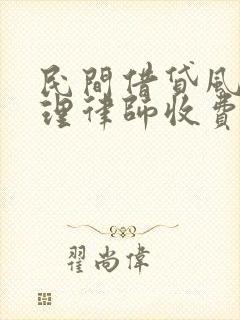 民間借貸風
理律師收費
翟尚偉